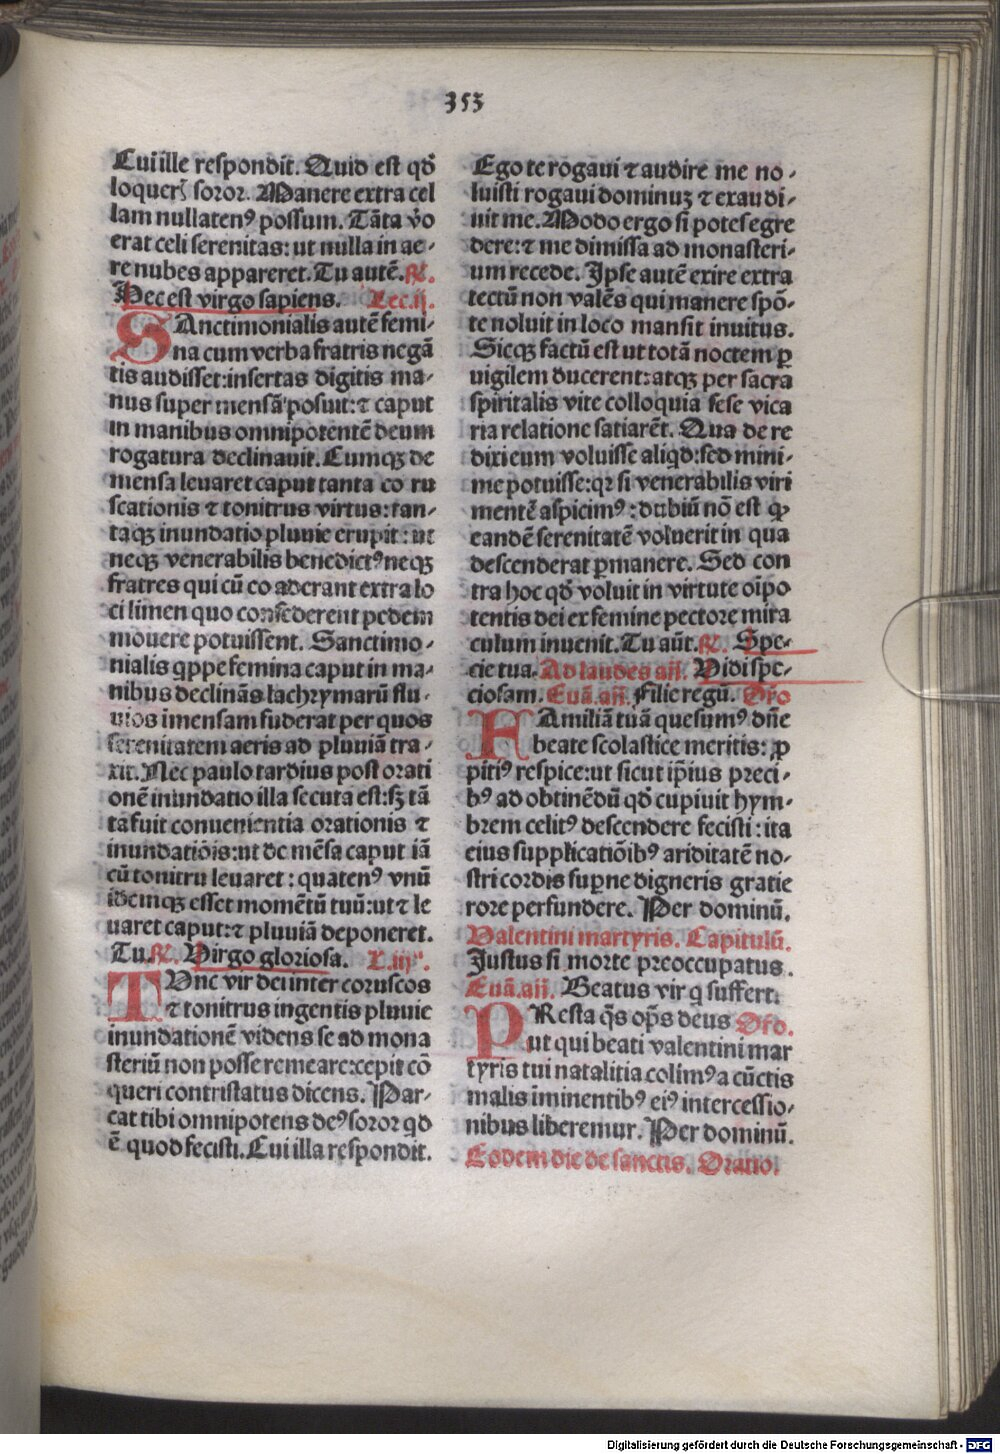 353
Cui ille respondit. Quid est qđ
loquerꝭ soror. Manere extra cel
lam nullatenꝰ possum. Tāta v̄o
erat celi serenitas: ut nulla in ae-
re nubes appareret. Tu autē. ꝶ.
Hec est virgo sapiens. Lec.ij.
SAnctimonialis autē femi-
na cum verba fratris negā
tis audisset: insertas digitis ma-
nus super mensā posuit: ⁊ caput
in manibus omnipotentē deum
rogatura declinauit. Cumqꝫ de
mensa leuaret caput tanta co ru
scationis ⁊ tonitrus virtus: tan-
taqꝫ inundatio pluuie erupit: ut
neqꝫ venerabilis benedictꝰ neqꝫ
fratres qui cū eo aderant extra lo
ci limen quo consederent pedem
mouere potuissent. Sanctimo-
nialis qͥppe femina caput in ma-
nibus declinās lachrymarū flu-
uios imensam fuderat per quos
serenitatem aeris ad pluuiā tra-
xit. Nec paulo tardius post orati
onē inundatio illa secuta est: sꝫ tā
ta fuit conuenientia orationis ⁊
inundatiōis: ut de mēsa caput iā
cū tonitru leuaret: quatenꝰ vnū
idemqꝫ esset momētū tuū: ut ⁊ le
uaret caput: ⁊ pluuiā deponeret.
Tu. ꝶ. Virgo gloriosa. L.iijᵃ.
TVnc vir dei inter coruscos
⁊ tonitrus ingentis pluuie
inundationē videns se ad mona
steriū non posse remeare: cepit cō
queri contristatus dicens. Par-
cat tibi omnipotens deꝰ soror qd
ē quod fecisti. Cui illa respondit.
Ego te rogaui ⁊ audire me no-
luisti rogaui dominuꝫ ⁊ exaudi-
uit me. Modo ergo si potes egre
dere: ⁊ me dimissa ad monasteri-
um recede. Ipse autē exire extra
tectū non valēs qui manere spō-
te noluit in loco mansit inuitus.
Sicqꝫ factū est ut totā noctem ꝑ
uigilem ducerent: atqꝫ per sacra
spiritalis vite colloquia sese vica
ria relatione satiarēt. Qua de re
dixi eum voluisse aliqͥd: sed mini-
me potuisse: qꝛ si venerabilis viri
mentē aspicimꝰ: dubiū nō est ꝙ
eandē serenitatē voluerit in qua
descenderat ꝑmanere. Sed con
tra hoc qđ voluit in virtute oīpo
tentis dei ex femine pectore mira
culum inuenit. Tu aūt. ꝶ. Spe-
cie tua. Ad laudes añ. Vidi spe-
ciosam. Euā. añ. Filie regū. Oro
FAmiliā tuā quesumꝰ dn̄e
beate scolastice meritis: ꝓ
pitiꝰ respice: ut sicut ip̄ius preci-
bꝰ ad obtinēdū qđ cupiuit hym-
brem celitꝰ descendere fecisti: ita
eius supplicatiōibꝰ ariditatē no-
stri cordis suꝑne digneris gratie
rore perfundere. Per dominū.
Valentini martyris. Capitulū.
Justus si morte preoccupatus.
Euā. añ. Beatus vir qͥ suffert.
PResta qs̄ op̄s deus Oro.
ut qui beati valentini mar
tyris tui natalitia colimꝰ a cūctis
malis iminentibꝰ eiꝰ intercessio-
nibus liberemur. Per dominū.
Eodem die de sanctis. Oratio.
Digitalisierung gefördert durch die Deutsche Forschungsgemeinschaft - DFG